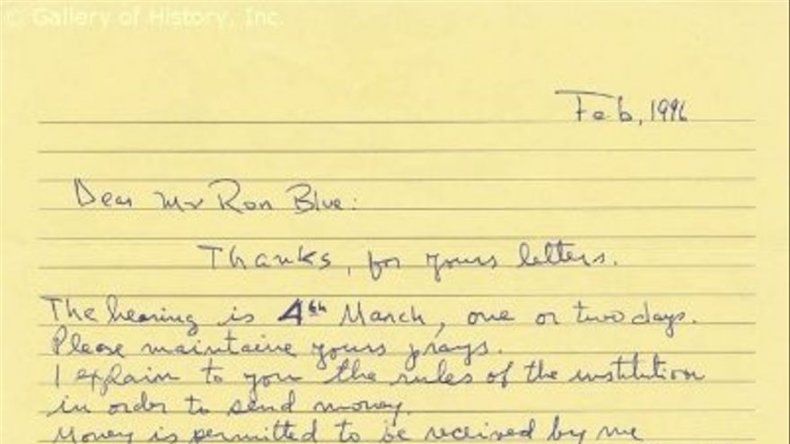 © Gallery of History, Inc.
Feb, 1996
Dear Mr Ron Blue:
Thanks, for yours letters.
The hearing is 4th March, one or two days.
Please maintaine yours prays.
I explain to you the rules of the institution
in order to send money.
Money is permitted to be received by me